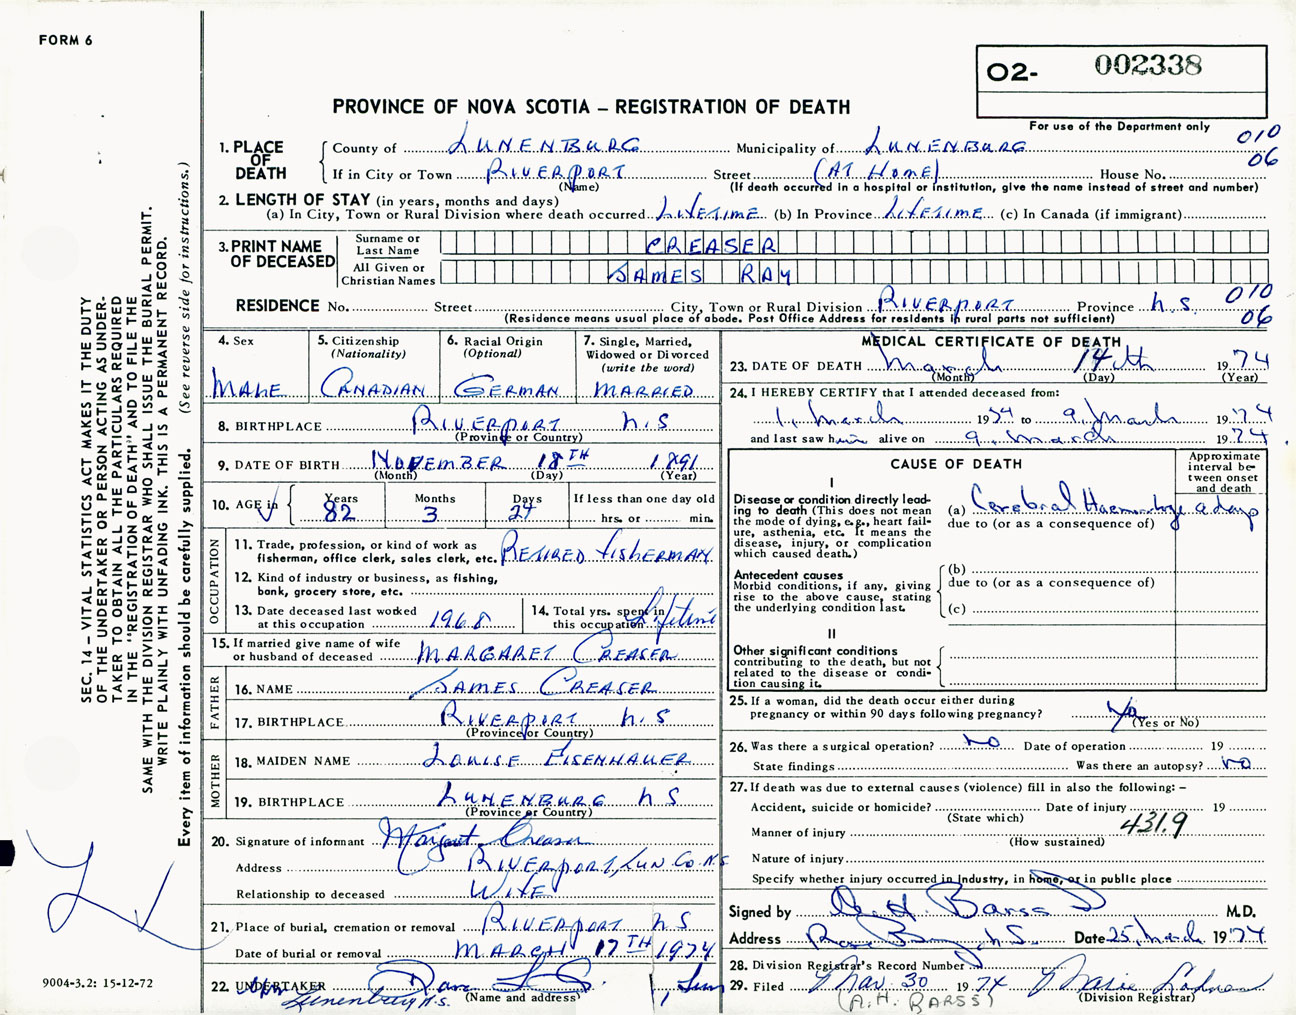 FORM 6
O2- 002338
PROVINCE OF NOVA SCOTIA – REGISTRATION OF DEATH
For use of the Department only
010
06
1. PLACE OF DEATH
County of LUNENBURG Municipality of LUNENBURG
If in City or Town RIVERPORT Street (AT HOME) House No.
(Name) (If death occurred in a hospital or institution, give the name instead of street and number)
2. LENGTH OF STAY (in years, months and days)
(a) In City, Town or Rural Division where death occurred LIFETIME (b) In Province LIFETIME (c) In Canada (if immigrant)
3. PRINT NAME OF DECEASED
Surname or Last Name CREASER
All Given or Christian Names JAMES RAY
RESIDENCE No. Street City, Town or Rural Division RIVERPORT Province N.S. 010
(Residence means usual place of abode. Post Office Address for residents in rural parts not sufficient) 06
4. Sex
MALE
5. Citizenship
(Nationality)
CANADIAN
6. Racial Origin
(Optional)
GERMAN
7. Single, Married,
Widowed or Divorced
(write the word)
MARRIED
8. BIRTHPLACE RIVERPORT N.S
(Province or Country)
9. DATE OF BIRTH NOVEMBER 18TH 1891
(Month) (Day) (Year)
10. AGE in
Years Months Days If less than one day old
82 3 27 hrs. or min.
OCCUPATION
11. Trade, profession, or kind of work as
fisherman, office clerk, sales clerk, etc. RETIRED FISHERMAN
12. Kind of industry or business, as fishing,
bank, grocery store, etc.
13. Date deceased last worked
at this occupation 1968
14. Total yrs. spent in
this occupation Lifetime
15. If married give name of wife
or husband of deceased MARGARET CREASER
FATHER
16. NAME JAMES CREASER
17. BIRTHPLACE RIVERPORT N.S
(Province or Country)
MOTHER
18. MAIDEN NAME LOUISE EISENHAUER
19. BIRTHPLACE LUNENBURG N S
(Province or Country)
20. Signature of informant Margaret Creaser
Address RIVERPORT, LUN. CO. N.S
Relationship to deceased WIFE
21. Place of burial, cremation or removal RIVERPORT N S
Date of burial or removal MARCH 17TH 1974
22. UNDERTAKER
Lunenburg N.S. (Name and address)
MEDICAL CERTIFICATE OF DEATH
23. DATE OF DEATH March 14th 1974
(Month) (Day) (Year)
24. I HEREBY CERTIFY that I attended deceased from:
1, March 1954 to 9, March 1974
and last saw him alive on 9, March 1974
CAUSE OF DEATH
Approximate interval between onset and death
I
Disease or condition directly leading to death (This does not mean the mode of dying, e.g., heart failure, asthenia, etc. It means the disease, injury, or complication which caused death.)
(a) Cerebral Haemorrhage
due to (or as a consequence of)
Antecedent causes
Morbid conditions, if any, giving rise to the above cause, stating the underlying condition last.
(b)
due to (or as a consequence of)
(c)
II
Other significant conditions
contributing to the death, but not related to the disease or condition causing it.
25. If a woman, did the death occur either during
pregnancy or within 90 days following pregnancy?
(Yes or No)
26. Was there a surgical operation? no Date of operation 19
State findings Was there an autopsy? no
27. If death was due to external causes (violence) fill in also the following: –
Accident, suicide or homicide? Date of injury 19
(State which)
Manner of injury 431.9
(How sustained)
Nature of injury
Specify whether injury occurred in industry, in home, or in public place
Signed by A. H. Barss M.D.
Address Rose Bay, N.S. Date 25, March 1974
28. Division Registrar's Record Number
29. Filed Mar. 30 1974 Marie
(A.H. BARSS) (Division Registrar)
SEC. 14 – VITAL STATISTICS ACT MAKES IT THE DUTY
OF THE UNDERTAKER OR PERSON ACTING AS UNDERTAKER TO OBTAIN ALL THE PARTICULARS REQUIRED
IN THE "REGISTRATION OF DEATH" AND TO FILE THE
SAME WITH THE DIVISION REGISTRAR WHO SHALL ISSUE THE BURIAL PERMIT.
WRITE PLAINLY WITH UNFADING INK. THIS IS A PERMANENT RECORD.
Every item of information should be carefully supplied. (See reverse side for instructions.)
9004-3.2: 15-12-72